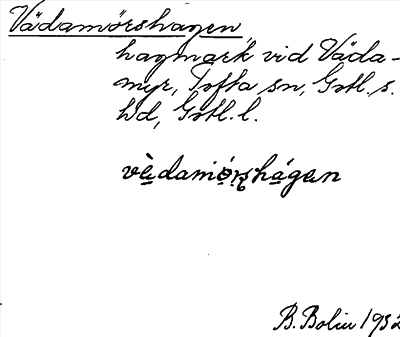 Vädamörshagen
hagmark vid Väda-
myr, Tofta sn, Gotl. s.
hd, Gotl. l.
vèdamórshágen
B. Bolin 1932